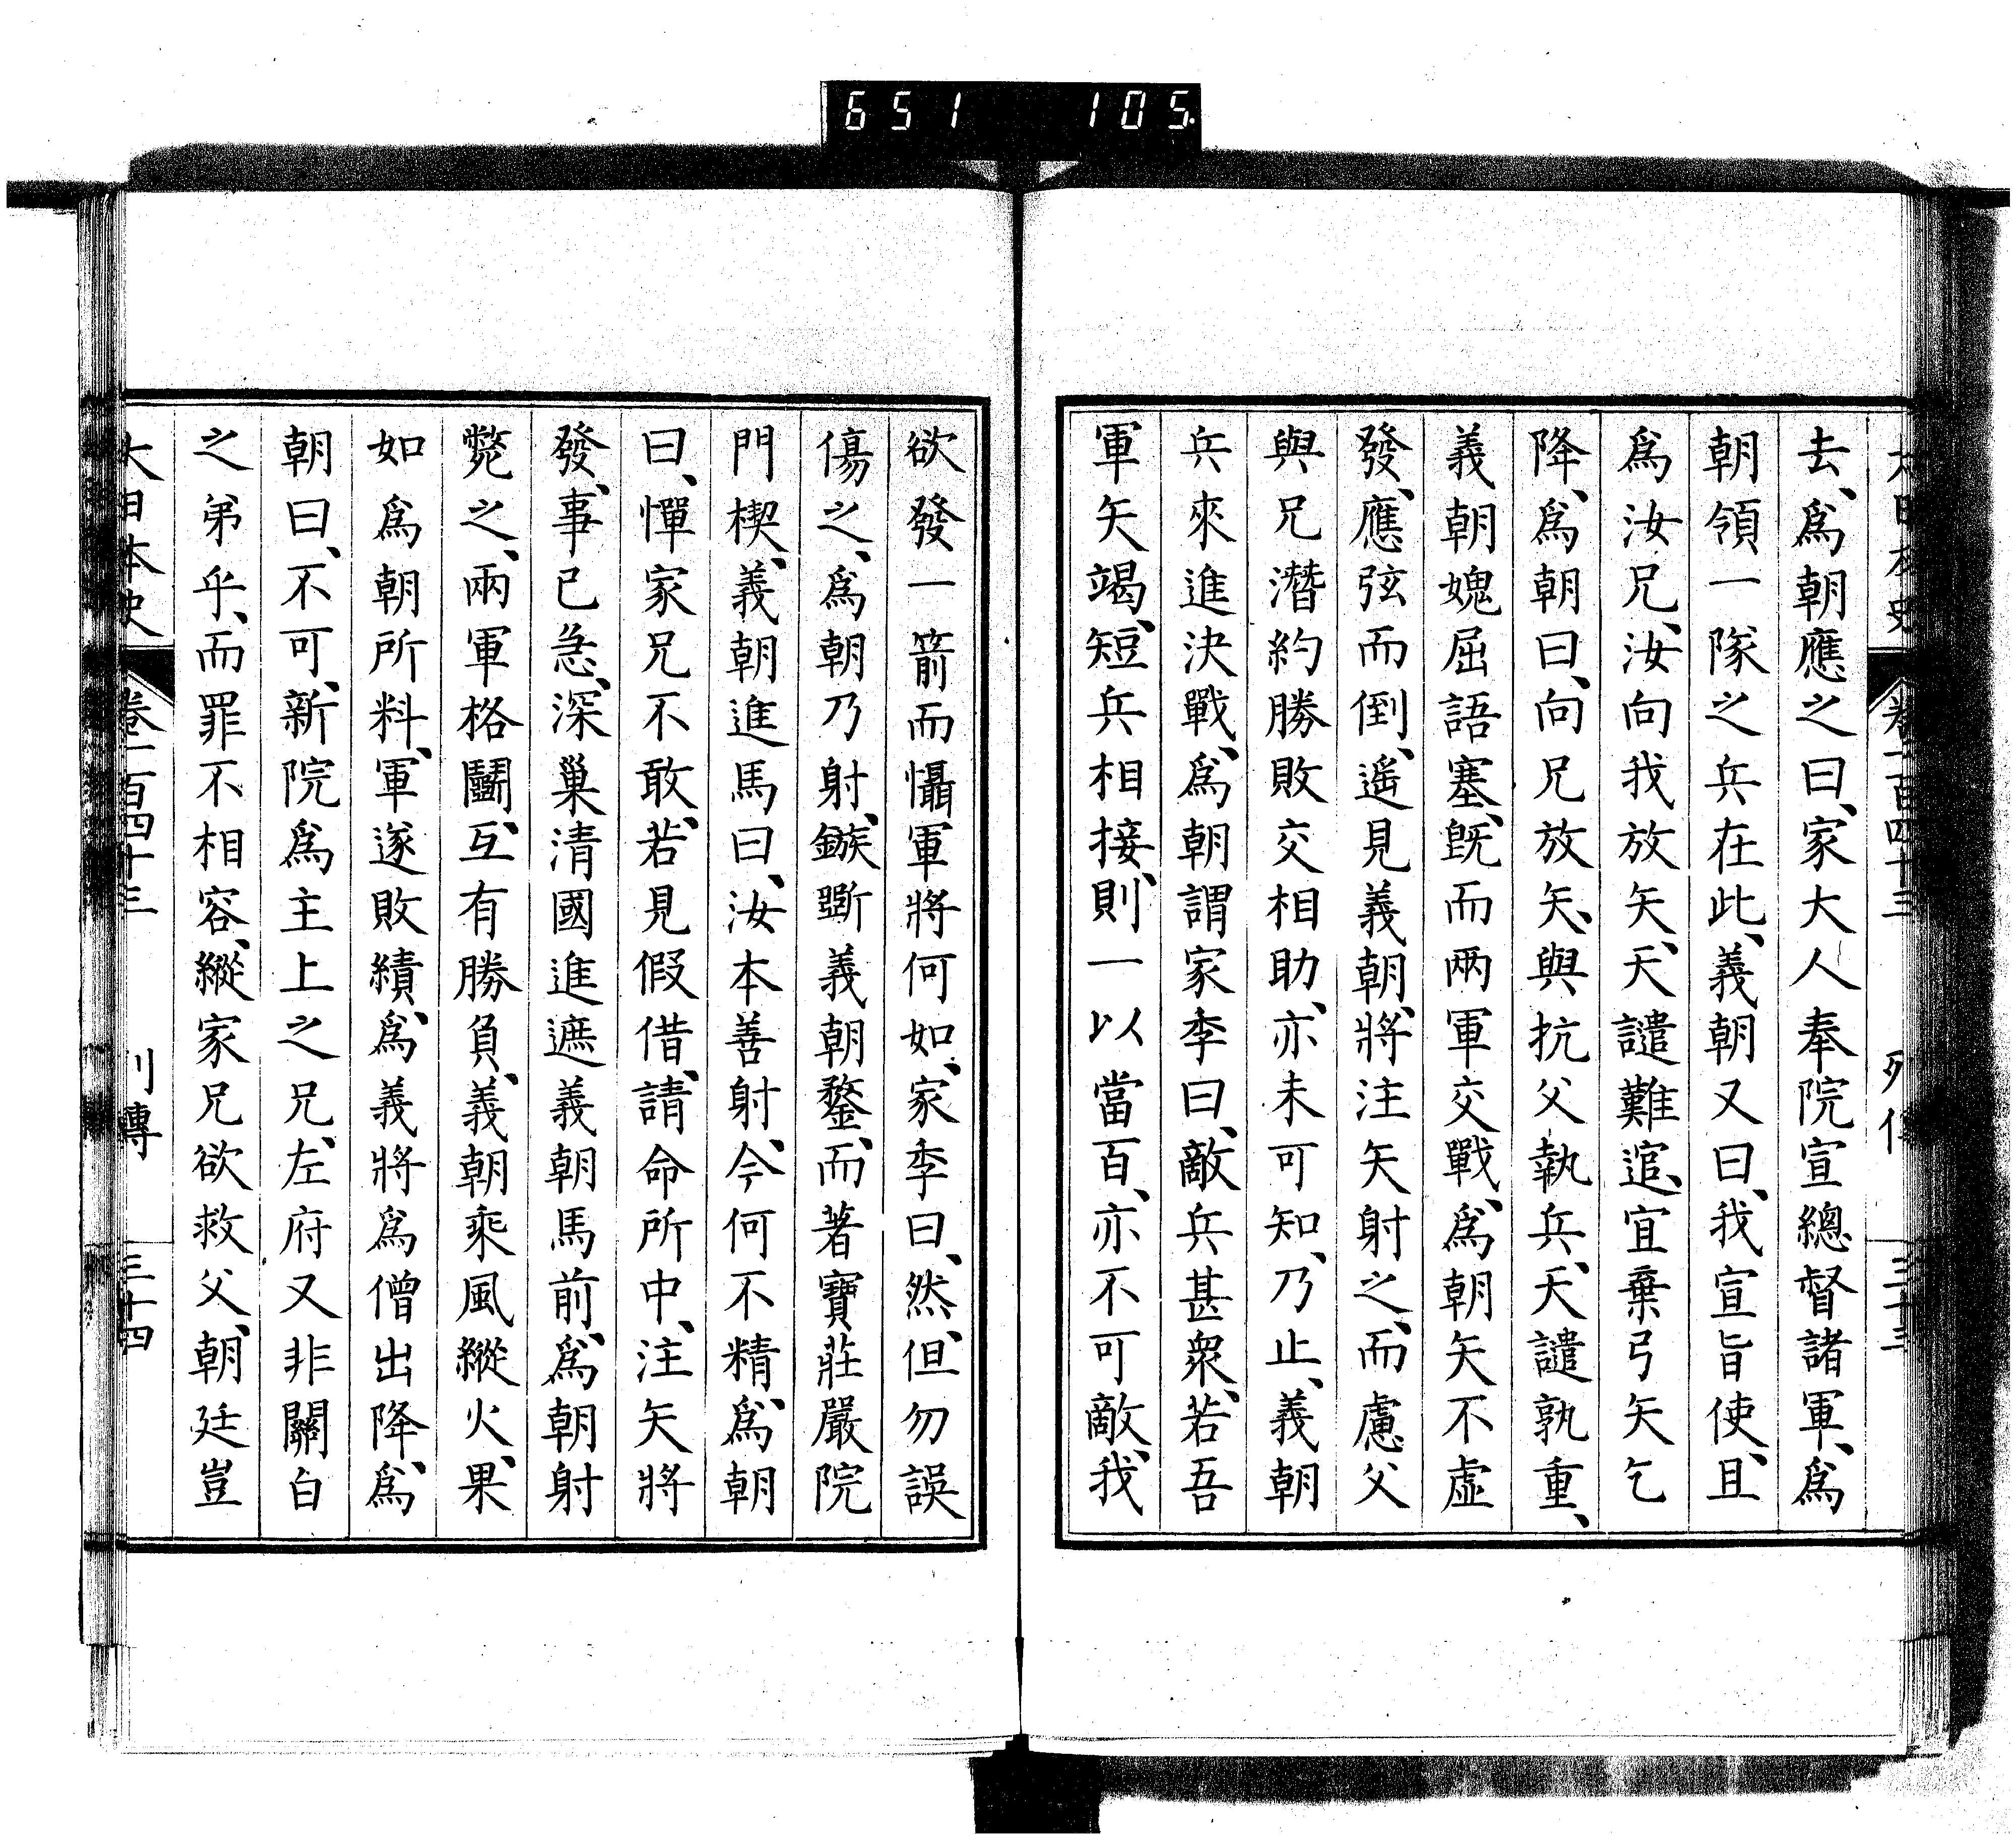 651 105
大日本史 卷一百四十三 列傳 三十三
去、爲朝應之曰、家大人奉院宣總督諸軍、爲
朝領一隊之兵在此、義朝又曰、我宣旨使、且
爲汝兄、汝向我放矢、天譴難逭、宜棄弓矢乞
降、爲朝曰、向兄放矢、與抗父執兵、天譴孰重、
義朝媿屈語塞、旣而兩軍交戰、爲朝矢不虛
發、應弦而倒、遙見義朝、將注矢射之、而慮父
與兄潛約勝敗交相助、亦未可知、乃止、義朝
兵來進決戰、爲朝謂家季曰、敵兵甚衆、若吾
軍矢竭、短兵相接、則一以當百、亦不可敵、我
欲發一箭而懾軍將何如、家季曰、然、但勿誤
傷之、爲朝乃射、鏃斷義朝鍪、而著寶莊嚴院
門楔、義朝進馬曰、汝本善射、今何不精、爲朝
曰、憚家兄不敢、若見假借、請命所中、注矢將
發、事已急、深巢清國進遮義朝馬前、爲朝射
斃之、兩軍格鬭、互有勝負、義朝乘風縱火、果
如爲朝所料、軍遂敗績、爲義將爲僧出降、爲
朝曰、不可、新院爲主上之兄、左府又非關白
之弟乎、而罪不相容、縱家兄欲救父、朝廷豈
大日本史 卷一百四十三 列傳 三十四